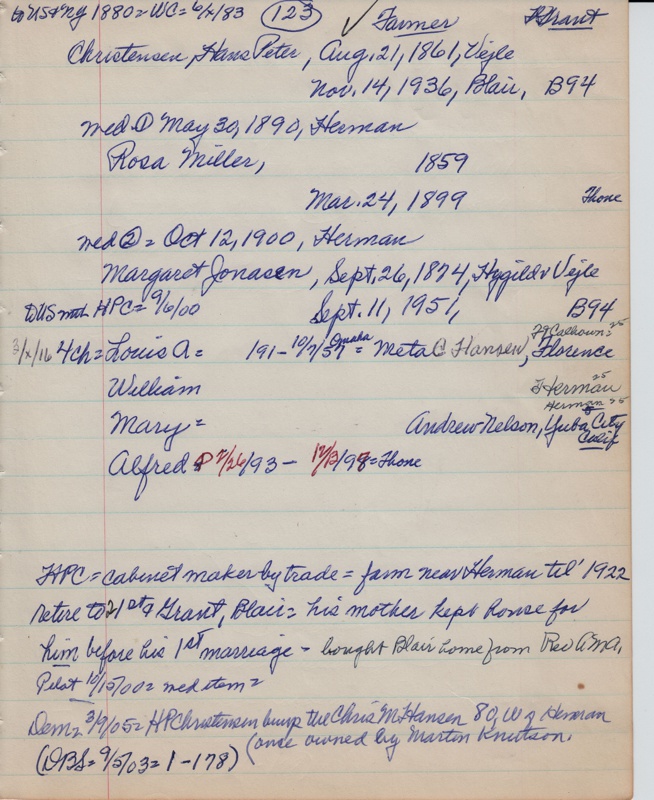 to US & Ng 1880 = WC = 6/x/83 (123) ✓ Farmer Grant
Christensen, Hans Peter, Aug. 21, 1861, Vejle
Nov. 14, 1936, Blair, B94
med ① May 30, 1890, Herman
Rosa Miller, 1859
Mar. 24, 1899 Thone
med ② = Oct 12, 1900, Herman
Margaret Jonasen, Sept. 26, 1874, Hygild v Vejle
to US with HPC = 9/6/00 Sept. 11, 1951, B94
Ft Calhoun = 25
3/x/16 4 ch = Louis A = 191-10/7/57 Omaha = Meta C Hansen, Florence
William Herman 25
Herman 25
Mary = Andrew Nelson, Yuba City
Calif
Alfred 2/26/93 - 12/13/98 = Thone
HPC = cabinet maker by trade = farm near Herman til' 1922
retire to 21st & Grant, Blair = his mother kept house for
him before his 1st marriage - bought Blair home from Rev AMA.
Pilot 10/15/00 = med item =
Dem = 3/9/05 = HPChristensen buys the Chris M Hansen 80, W of Herman
(once owned by Martin Knutson.
(DBS = 9/5/03 = 1-178)